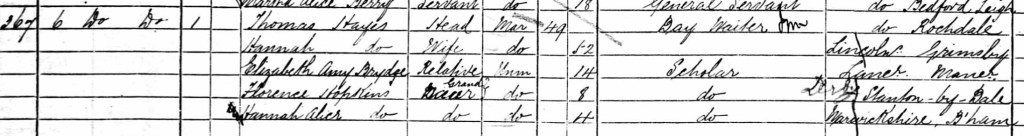 Martha Alice Berry Servant do 18 General Servant do Bedford Leigh
267 6 Do Do 1 Thomas Hayes Head Mar 49 Bay Waiter do Rochdale
Hannah do Wife do 52 Lincoln. Grimsby
Elizabeth Amy Brydge Relative Unm 14 Scholar Lanc.
Florence Hopkins Grand Daur do 8 do Derby Stanton-by-Dale
Hannah Alice do do do 4 do Warwickshire B'ham